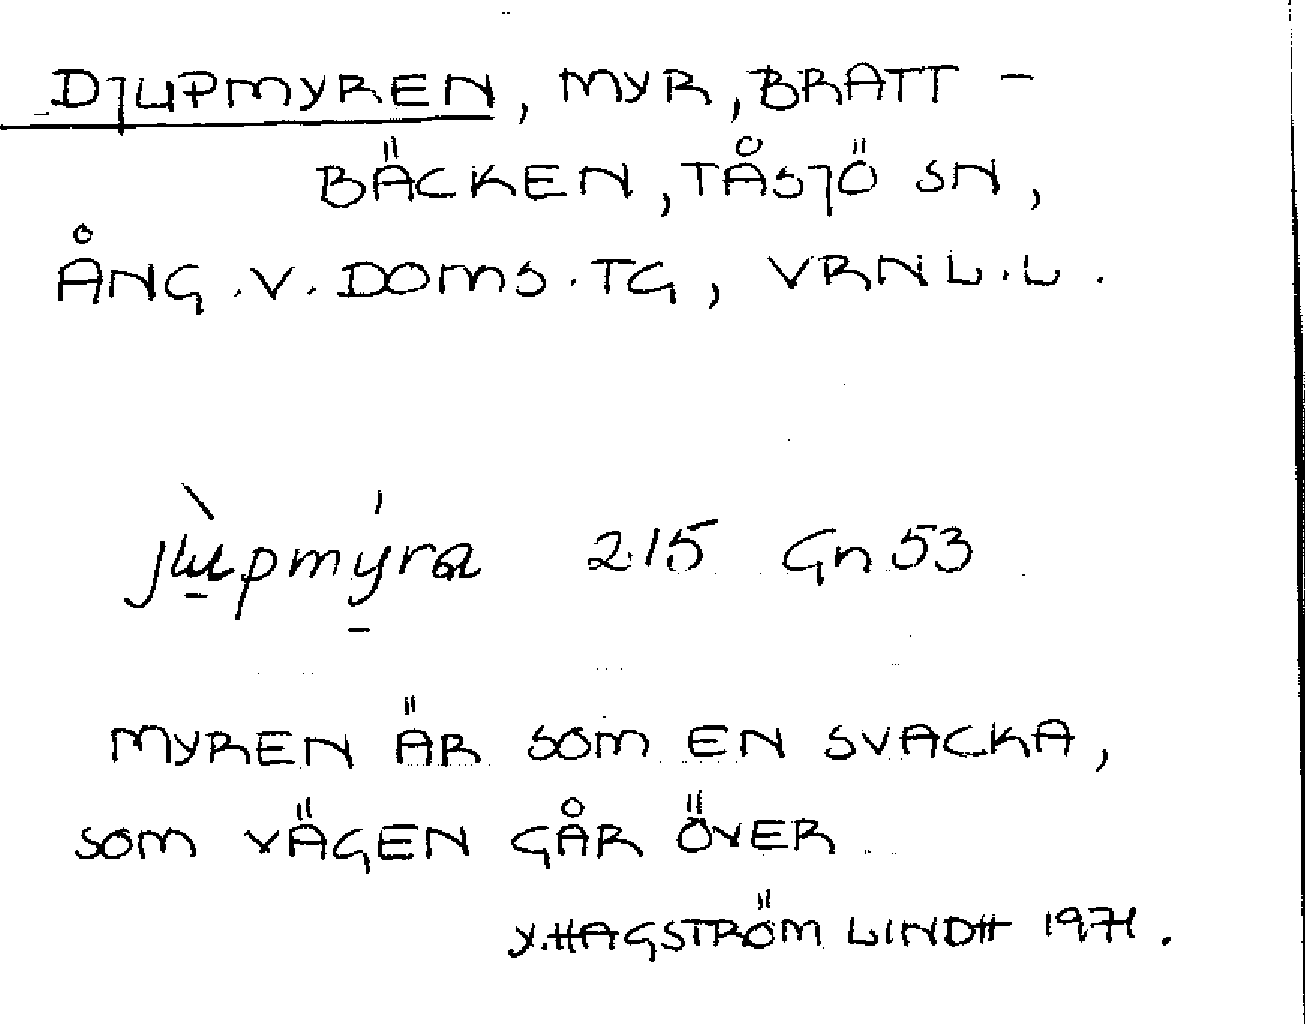 DJUPMYREN, MYR, BRATT-
BÄCKEN, TÅSJÖ SN,
ÅNG.V.DOMS.TG, VRNL.L.
jùpmýra 215 Gn 53
MYREN ÄR SOM EN SVACKA,
SOM VÄGEN GÅR ÖVER
Y.HAGSTRÖM LINDH 1971.